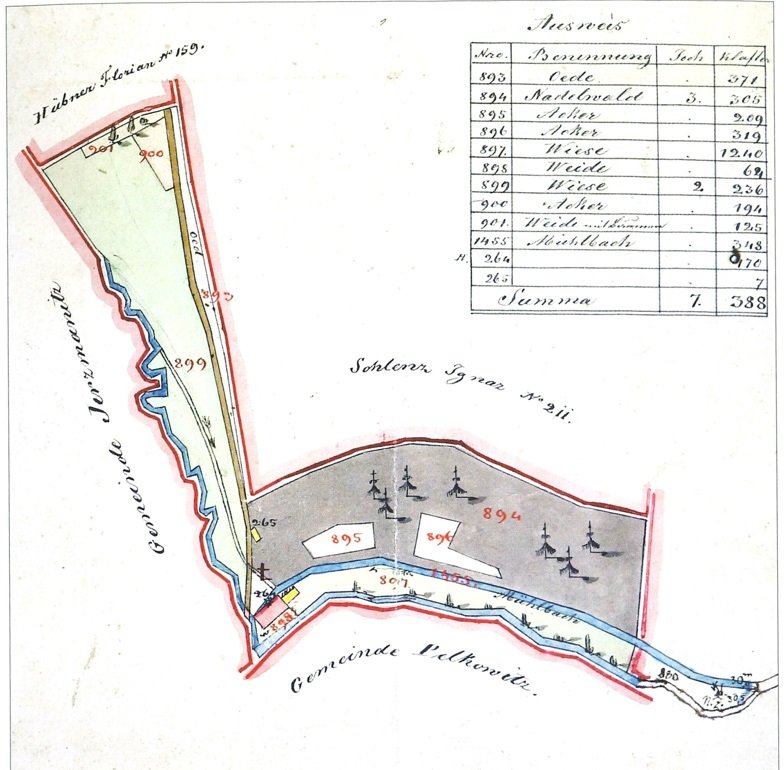 Ausweis
Nro. Benennung Joch Klafter
893 Oede . 371
894 Nadelwald 3. 305
895 Acker . 209
896 Acker . 319
897. Wiese . 1240
898 Weide . 62
899 Wiese 2. 236
900 Acker . 194
901. Weide . 125
1455 Mühlbach . 348
264 . 170
265 . 7
Summa 7. 388
Hübner Florian No 159.
901 900
oed
893
899
Gemeinde Jerzmanitz
Sohlenz Ignaz No 211.
265
894
895
896
1455
897
Mühlbach
264
898
Gemeinde Petkowitz.
880
30